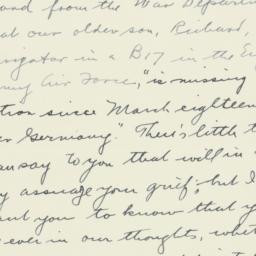 from the War Depart
at our older son, Richard,
in a B17 in the
Air Force," is missing
tion since March eighteen
Germany." There's little
say to you that will in
assuage your grief, but I
you to know that y
ever in our thoughts,